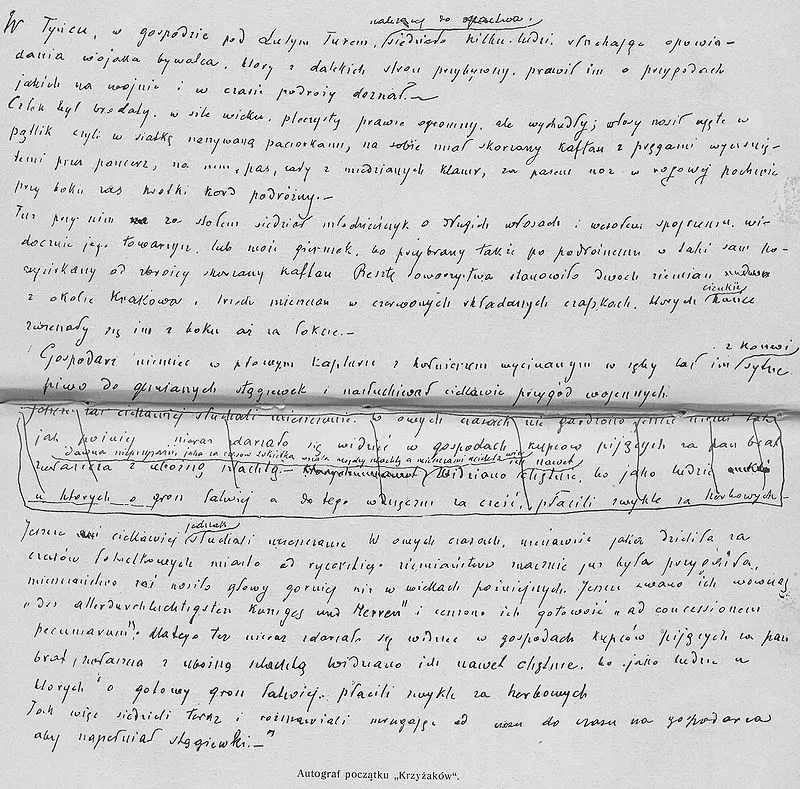 należącej do opactwa.
W Tyńcu, w gospodzie pod Lutym Turem, siedziało kilku ludzi, słuchając opowia-
dania wojaka bywalca, który z dalekich stron przybywszy, prawił im o przygodach
jakich na wojnie i w czasie podróży doznał.—
Człek był brodaty, w sile wieku, pleczysty prawie ogromny, ale wychudły; włosy nosił ujęte w
pątlik czyli w siatkę naszywaną paciorkami, na sobie miał skórzany kaftan z pręgami wyciśnię-
temi przez pancerz, na nim, pas, cały z miedzianych klamr, za pasem nóż w rogowej pochwie
przy boku zaś krótki kord podróżny.—
Tuż przy nim za stołem siedział młodzieńczyk o długich włosach i wesołem spojrzeniu, wi-
docznie jego towarzysz, lub może giermek, bo przybrany także po podróżnemu w taki sam po-
wyciskany od zbroicy skórzany kaftan Resztę towarzystwa stanowiło dwóch ziemian
z okolic Krakowa i trzech mieszczan w czerwonych składanych czapkach, których cienkie końce
zwieszały się im z boku aż na łokcie.—
Gospodarz niemiec w płowym kapturze z kołnierzem wycinanym w zęby lał im z konwi sytne
piwo do glinianych stągiewek i nasłuchiwał ciekawie przygód wojennych.
Jeszcze zaś ciekawiej słuchali mieszczanie. W owych czasach nie
jak później nieraz zdarzało się widzieć w gospodach kupców pijących za pan brat
zwłaszcza z uboższą szlachtą.— Widziano ich nawet chętnie, bo jako ludzie
u których o grosz łatwiej a do tego wdzięczni za cześć, płacili zwykle za herbowych—
Jeszcze ciekawiej jednak słuchali mieszczanie W owych czasach, nienawiść jaka dzieliła za
czasów Łokietkowych miasto od rycerskiego ziemiaństwa znacznie już była przygasła,
mieszczaństwo zaś nosiło głowy górniej niż w wiekach późniejszych. Jeszcze zwano ich wówczas
„des allerdurchluchtigsten Kuniges und Herren" i ceniono ich gotowość „ad concessionem
pecuniarum"; dlatego też nieraz zdarzało się widzieć w gospodach kupców pijących za pan
brat, zwłaszcza z uboższą szlachtą Widziano ich nawet chętnie, bo jako ludzie u
których o gotowy grosz łatwiej, płacili zwykle za herbowych
Tak więc siedzieli teraz i rozmawiali mrugając od czasu do czasu na gospodarza
aby napełniał stągiewki.—"
Autograf początku „Krzyżaków".